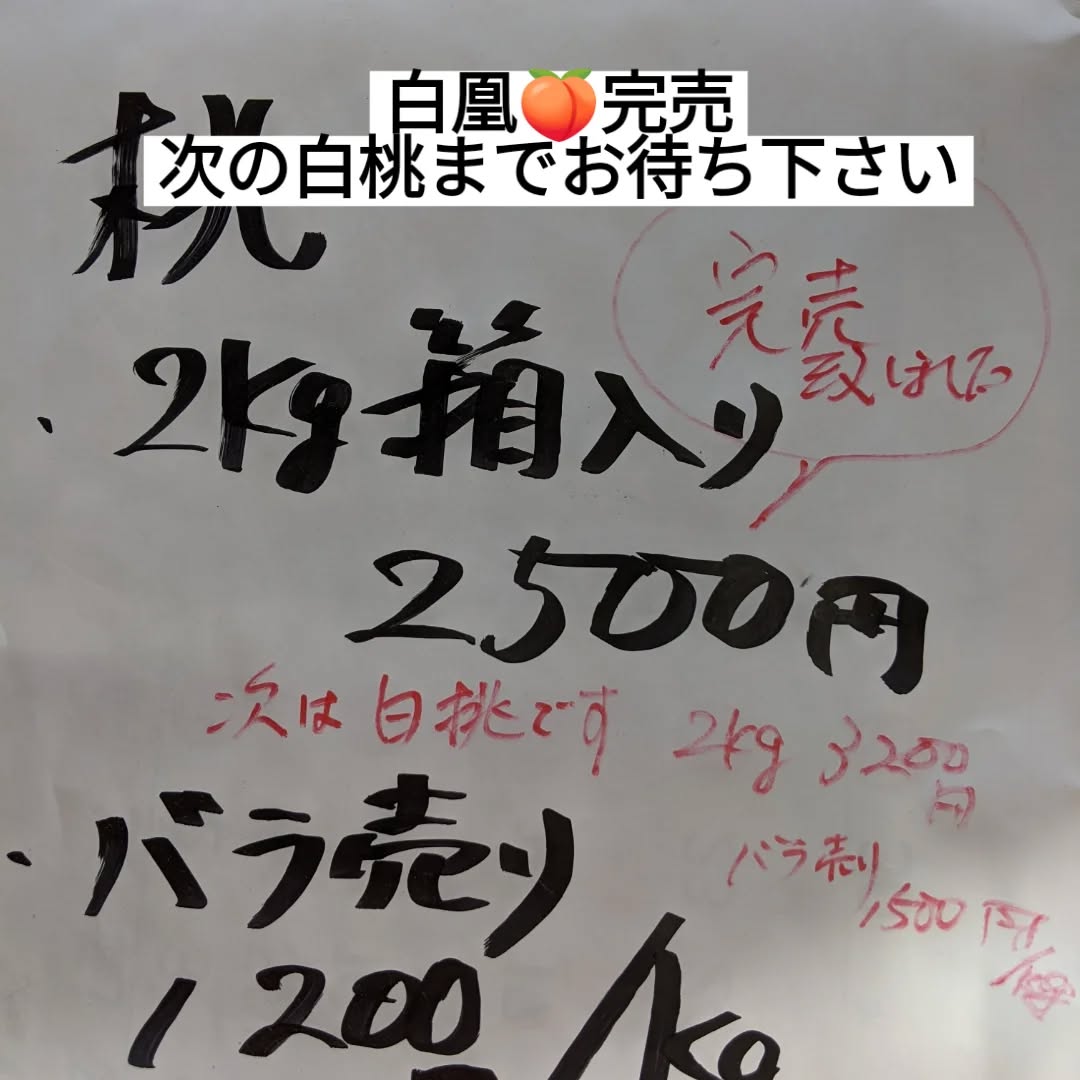 白凰🍑完売
次の白桃までお待ち下さい
桃
完売
致しました
・2kg箱入り
2500円
次は白桃です 2kg 3200
円
・バラ売り
バラ売り
1500円
/kg
1200/kg